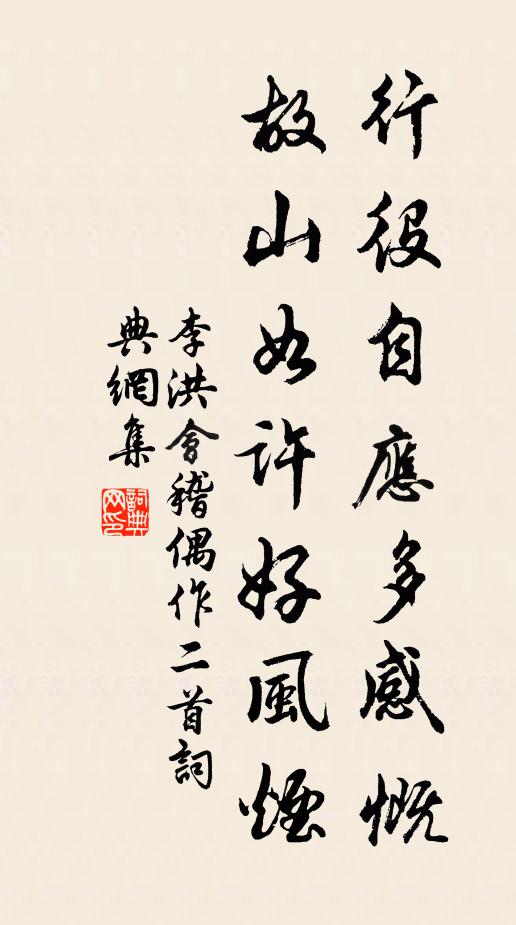 行役自應多感慨
故山如許好風煙
李洪會稽偶作二首詞
典網集
詞典網印